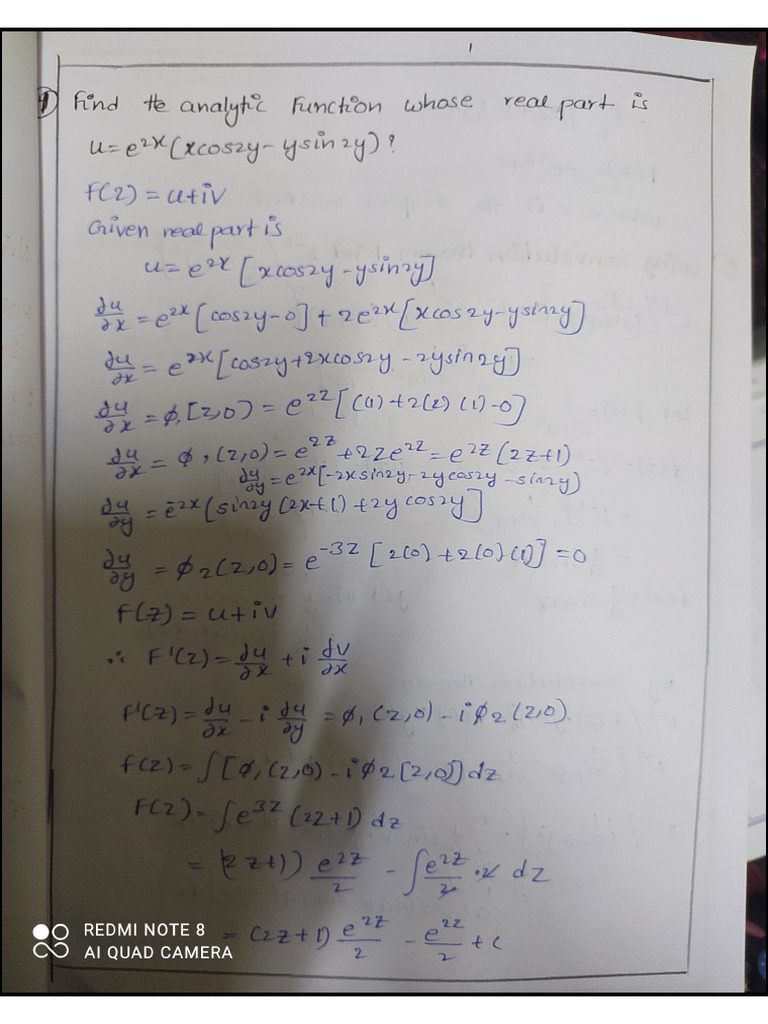 1
1) Find the analytic Function whose real part is
u=e^2x(xcos2y-ysin2y)?
F(z)=u+iv
Given real part is
u=e^2x[xcos2y-ysin2y]
∂u/∂x=e^2x[cos2y-0]+2e^2x[xcos2y-ysin2y]
∂u/∂x=e^2x[cos2y+2xcos2y-2ysin2y]
∂u/∂x=ϕ1[z,0)=e^2z[(1)+2(z)(1)-0]
∂u/∂x=ϕ1(z,0)=e^2z+2ze^2z=e^2z(2z+1)
∂u/∂y=e^2x[-2xsin2y-2ycos2y-sin2y)
∂u/∂y=e^-2x[sin2y(2x+1)+2ycos2y]
∂u/∂y=ϕ2(z,0)=e^-3z[2(0)+2(0)(1)]=0
F(z)=u+iv
∴ F'(z)=∂u/∂x+i ∂v/∂x
F'(z)=∂u/∂x-i ∂u/∂y=ϕ1(z,0)-iϕ2(z,0)
f(z)=∫[ϕ1(z,0)-iϕ2[z,0)]dz
F(z)=∫e^3z(2z+1)dz
=(2z+1))e^2z/2-∫e^2z/2·2 dz
=(2z+1)e^2z/2-e^2z/2+c
REDMI NOTE 8
AI QUAD CAMERA